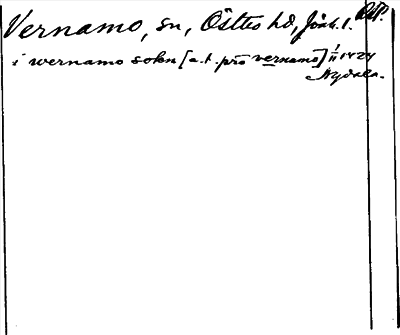 Vernamo, sn, Östbo hd, Jönk. l. RAP.
i wernamo sokn [a.t. pro vernamo] 1/11 1424
Nydala.